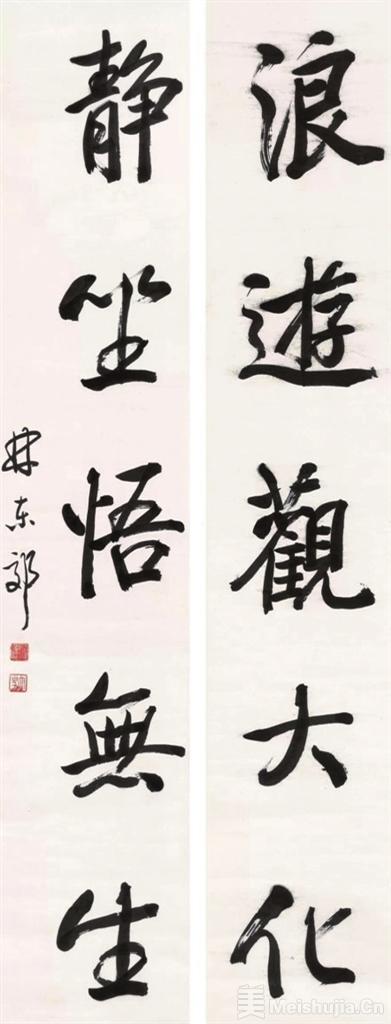 浪遊觀大化
静坐悟無生
林东郊
美 Meishujia.Cn